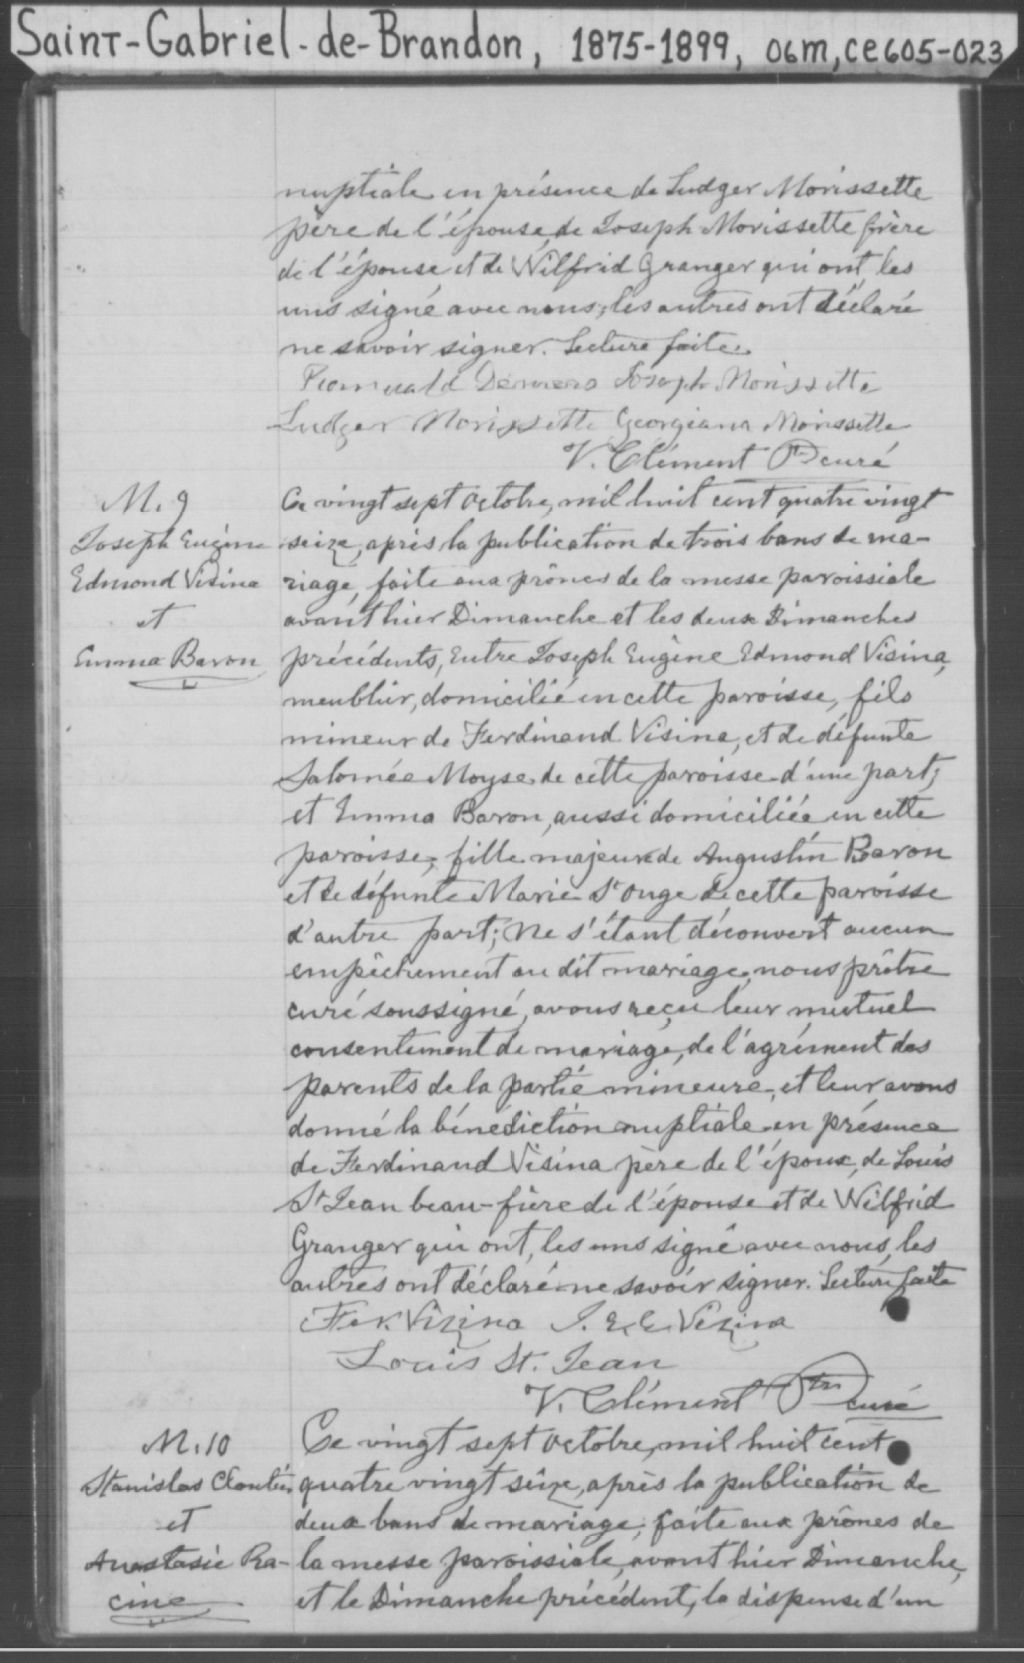 Saint-Gabriel-de-Brandon, 1875-1899, 06m, ce605-023
nuptiale en présence de Ludger Morissette
père de l'épouse, de Joseph Morissette frère
de l'épouse et de Wilfrid Granger qui ont, les
uns signé avec nous, les autres ont déclaré
ne savoir signer. Lecture faite.
Romuald Demers Joseph Morissette
Ludger Morissette Georgiana Morissette
V. Clément Ptre curé
M. 9
Joseph Eugène
Edmond Visina
et
Emma Baron
Ce vingt sept Octobre, mil huit cent quatre vingt
seize, après la publication de trois bans de ma-
riage, faite aux prônes de la messe paroissiale
avant hier Dimanche et les deux Dimanches
précédents, entre Joseph Eugène Edmond Visina,
meublier, domicilié en cette paroisse, fils
mineur de Ferdinand Visina, et de défunte
Salomée Moyse de cette paroisse d'une part;
et Emma Baron, aussi domiciliée en cette
paroisse, fille majeure de Augustin Baron
et de défunte Marie St Onge de cette paroisse
d'autre part; Ne s'étant découvert aucun
empêchement au dit mariage, nous prêtre
curé soussigné, avons reçu leur mutuel
consentement de mariage, de l'agrément des
parents de la partie mineure, et leur avons
donné la bénédiction nuptiale en présence
de Ferdinand Visina père de l'époux, de Louis
St Jean beau-frère de l'épouse et de Wilfrid
Granger qui ont, les uns signé avec nous, les
autres ont déclaré ne savoir signer. Lecture faite
Fer. Vizina J. E. E. Vezina
Louis St. Jean
V. Clément Ptre curé
M. 10
Stanislas Cloutier
et
Anastasie Ra-
cine
Ce vingt sept Octobre, mil huit cent
quatre vingt seize, après la publication de
deux bans de mariage, faite aux prônes de
la messe paroissiale, avant hier Dimanche,
et le Dimanche précédent, la dispense d'un